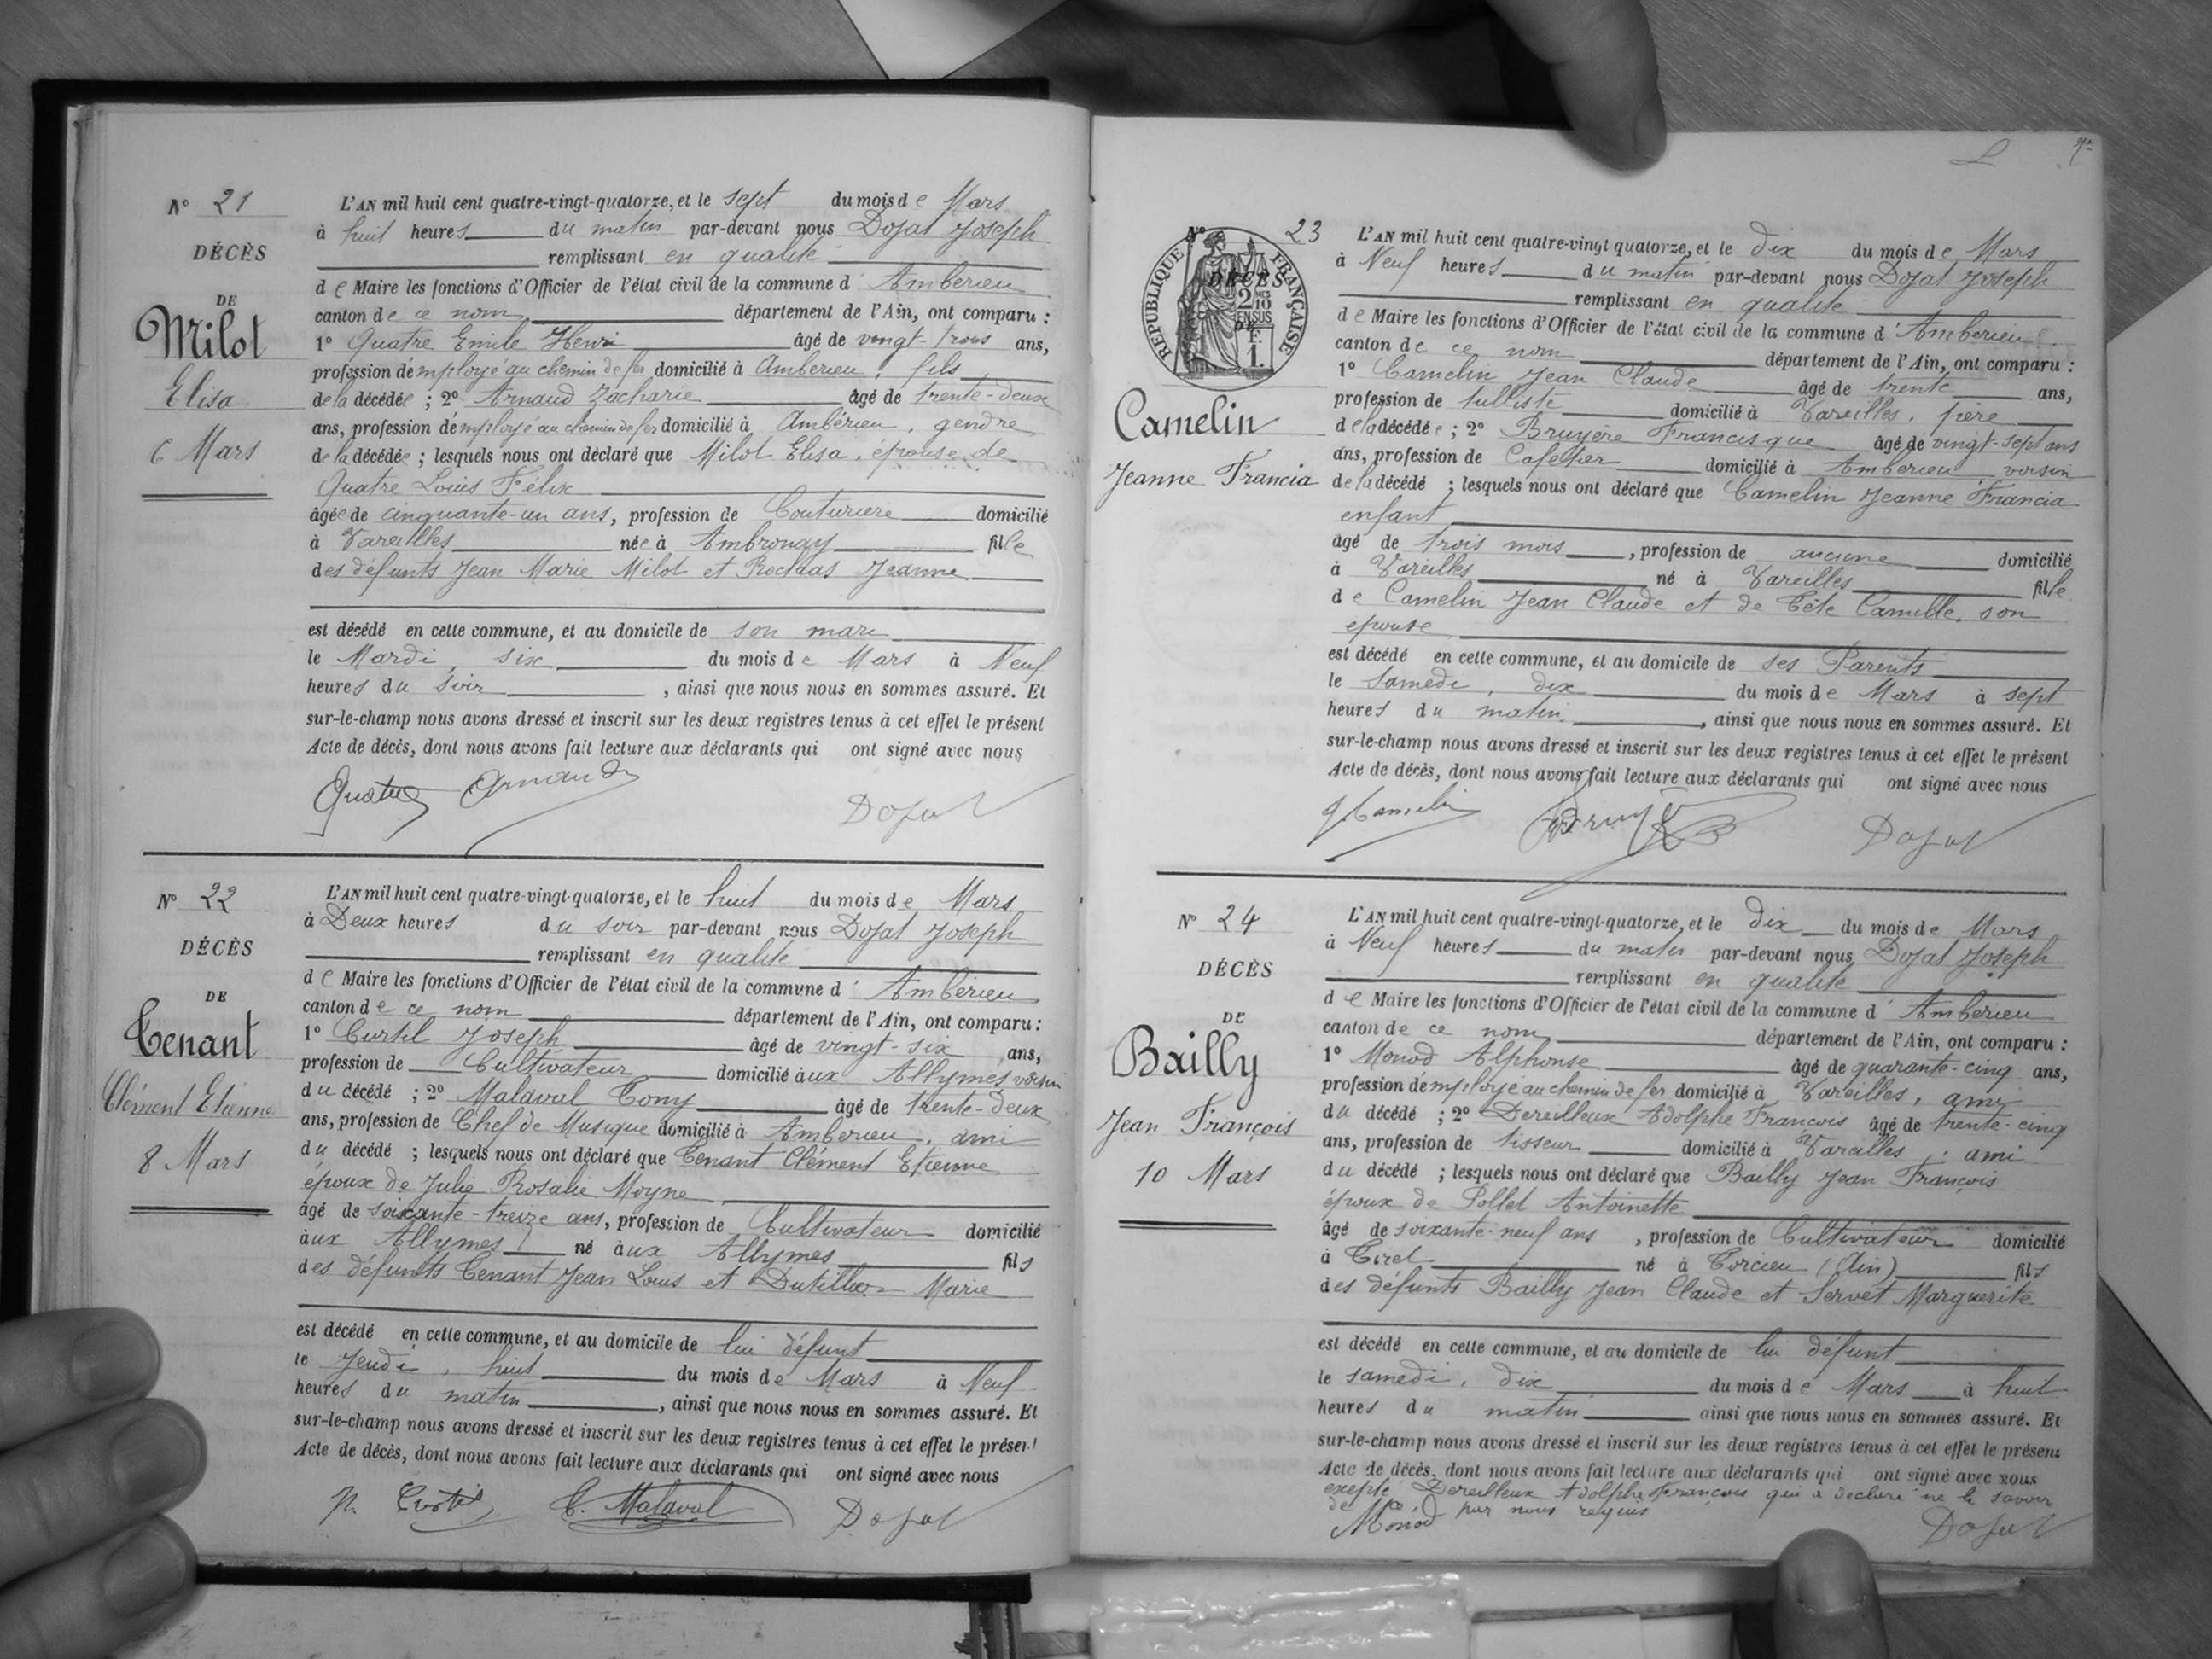 N° 21
DÉCÈS
DE
Milot
Elisa
6 Mars
L'AN mil huit cent quatre-vingt-quatorze, et le sept du mois de Mars
à huit heures du matin par-devant nous Dojat Joseph
remplissant en qualité
de Maire les fonctions d'Officier de l'état civil de la commune d' Ambérieu
canton de ce nom département de l'Ain, ont comparu :
1° Quatre Emile Henri âgé de vingt-trois ans,
profession d'employé au chemin de fer domicilié à Ambérieu, fils
de la décédée ; 2° Arnaud Zacharie âgé de trente-deux
ans, profession d'employé au chemin de fer domicilié à Ambérieu, gendre
de la décédée ; lesquels nous ont déclaré que Milot Elisa, épouse de
Quatre Louis Félix
âgée de cinquante-un ans, profession de Couturière domicilié
à Vareilles née à Ambronay fille
des défunts Jean Marie Milot et Jeanne
est décédé en cette commune, et au domicile de son mari
le Mardi, six du mois de Mars à Neuf
heures du soir, ainsi que nous nous en sommes assuré. Et
sur-le-champ nous avons dressé et inscrit sur les deux registres tenus à cet effet le présent
Acte de décès, dont nous avons fait lecture aux déclarants qui ont signé avec nous
Quatre Arnaud Dojat
N° 22
DÉCÈS
DE
Tenant
Clément Etienne
8 Mars
L'AN mil huit cent quatre-vingt-quatorze, et le huit du mois de Mars
à Deux heures du soir par-devant nous Dojat Joseph
remplissant en qualité
de Maire les fonctions d'Officier de l'état civil de la commune d' Ambérieu
canton de ce nom département de l'Ain, ont comparu :
1° Curtil Joseph âgé de vingt-six ans,
profession de Cultivateur domicilié aux Allymes voisin
du décédé ; 2° Malaval Tony âgé de trente-deux
ans, profession de Chef de Musique domicilié à Ambérieu, ami
du décédé ; lesquels nous ont déclaré que Tenant Clément Etienne
époux de Julie Rosalie Moyne
âgé de soixante-treize ans, profession de Cultivateur domicilié
aux Allymes né aux Allymes fils
des défunts Tenant Jean Louis et Marie
est décédé en cette commune, et au domicile de lui défunt
le Jeudi, huit du mois de Mars à Neuf
heures du matin, ainsi que nous nous en sommes assuré. Et
sur-le-champ nous avons dressé et inscrit sur les deux registres tenus à cet effet le présent
Acte de décès, dont nous avons fait lecture aux déclarants qui ont signé avec nous
T. Malaval Dojat
N° 23
RÉPUBLIQUE FRANÇAISE
DÉCÈS
2 MES
10
EN SUS
DE
F.
1.
Camelin
Jeanne Francia
L'AN mil huit cent quatre-vingt quatorze, et le dix du mois de Mars
à Neuf heures du matin par-devant nous Dojat Joseph
remplissant en qualité
de Maire les fonctions d'Officier de l'état civil de la commune d' Ambérieu
canton de ce nom département de l'Ain, ont comparu :
1° Camelin Jean Claude âgé de trente ans,
profession de tulliste domicilié à Vareilles, père
de la décédée ; 2° Bruyère Francisque âgé de vingt-sept ans
ans, profession de Cafetier domicilié à Ambérieu voisin
de la décédé ; lesquels nous ont déclaré que Camelin Jeanne Francia
enfant
âgé de trois mois, profession de aucune domicilié
à Vareilles né à Vareilles fille
de Camelin Jean Claude et de Tête Camille, son
épouse
est décédé en cette commune, et au domicile de ses Parents
le samedi, dix du mois de Mars à sept
heures du matin, ainsi que nous nous en sommes assuré. Et
sur-le-champ nous avons dressé et inscrit sur les deux registres tenus à cet effet le présent
Acte de décès, dont nous avons fait lecture aux déclarants qui ont signé avec nous
Camelin Dojat
N° 24
DÉCÈS
DE
Bailly
Jean François
10 Mars
L'AN mil huit cent quatre-vingt-quatorze, et le dix du mois de Mars
à Neuf heures du matin par-devant nous Dojat Joseph
remplissant en qualité
de Maire les fonctions d'Officier de l'état civil de la commune d' Ambérieu
canton de ce nom département de l'Ain, ont comparu :
1° Monod Alphonse âgé de quarante-cinq ans,
profession d'employé au chemin de fer domicilié à Vareilles, ami
du décédé ; 2° Dereilleux Adolphe François âgé de trente-cinq
ans, profession de tisseur domicilié à Vareilles, ami
du décédé ; lesquels nous ont déclaré que Bailly Jean François
époux de Pollet Antoinette
âgé de soixante-neuf ans, profession de Cultivateur domicilié
à Tiret né à Torcieu (Ain) fils
des défunts Bailly Jean Claude et Servet Marguerite
est décédé en cette commune, et au domicile de lui défunt
le samedi, dix du mois de Mars à huit
heures du matin ainsi que nous nous en sommes assuré. Et
sur-le-champ nous avons dressé et inscrit sur les deux registres tenus à cet effet le présent
Acte de décès, dont nous avons fait lecture aux déclarants qui ont signé avec nous
excepté Dereilleux Adolphe François qui a déclaré ne le savoir
de ce, par nous requis
Monod Dojat